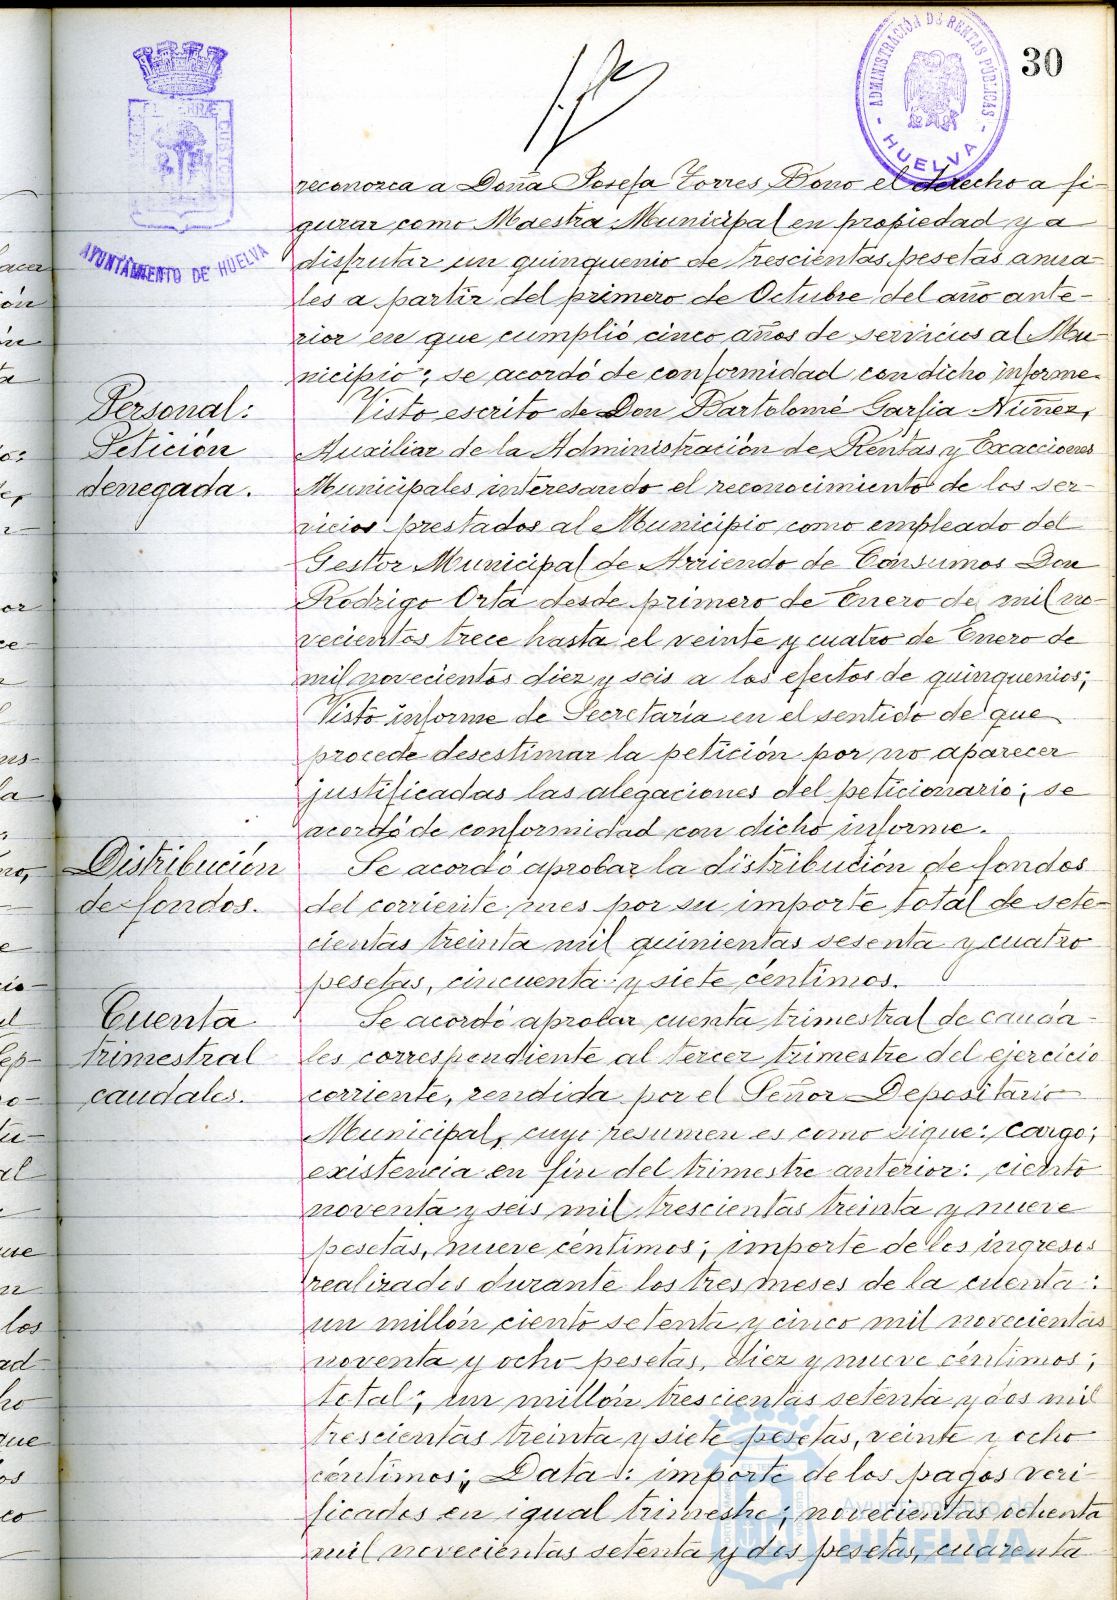 30
ADMINISTRACIÓN DE RENTAS PÚBLICAS
HUELVA
AYUNTAMIENTO DE HUELVA
reconozca a Doña Josefa Torres Bono el derecho a fi-
gurar como Maestra Municipal en propiedad y a
disfrutar un quinquenio de trescientas pesetas anua-
les a partir del primero de Octubre del año ante-
rior en que cumplió cinco años de servicios al Mu-
nicipio; se acordó de conformidad con dicho informe.
Personal:
Petición
denegada.
Visto escrito de Don Bartolomé Garfia Núñez,
Auxiliar de la Administración de Rentas y Exacciones
Municipales interesando el reconocimiento de los ser-
vicios prestados al Municipio como empleado del
Gestor Municipal de Arriendo de Consumos Don
Rodrigo Orta desde primero de Enero de mil no-
vecientos trece hasta el veinte y cuatro de Enero de
mil novecientos diez y seis a los efectos de quinquenios;
Visto informe de Secretaría en el sentido de que
procede desestimar la petición por no aparecer
justificadas las alegaciones del peticionario; se
acordó de conformidad con dicho informe.
Distribución
de fondos.
Se acordó aprobar la distribución de fondos
del corriente mes por su importe total de sete-
cientas treinta mil quinientas sesenta y cuatro
pesetas, cincuenta y siete céntimos.
Cuenta
trimestral
caudales.
Se acordó aprobar cuenta trimestral de cauda-
les correspondiente al tercer trimestre del ejercicio
corriente, rendida por el Señor Depositario
Municipal, cuyo resumen es como sigue: cargo;
existencia en fin del trimestre anterior: ciento
noventa y seis mil trescientas treinta y nueve
pesetas, nueve céntimos; importe de los ingresos
realizados durante los tres meses de la cuenta:
un millón ciento setenta y cinco mil novecientas
noventa y ocho pesetas, diez y nueve céntimos;
total; un millón trescientas setenta y dos mil
trescientas treinta y siete pesetas, veinte y ocho
céntimos; Data: importe de los pagos veri-
ficados en igual trimestre; novecientas ochenta
mil novecientas setenta y dos pesetas, cuarenta
Ayuntamiento de
HUELVA